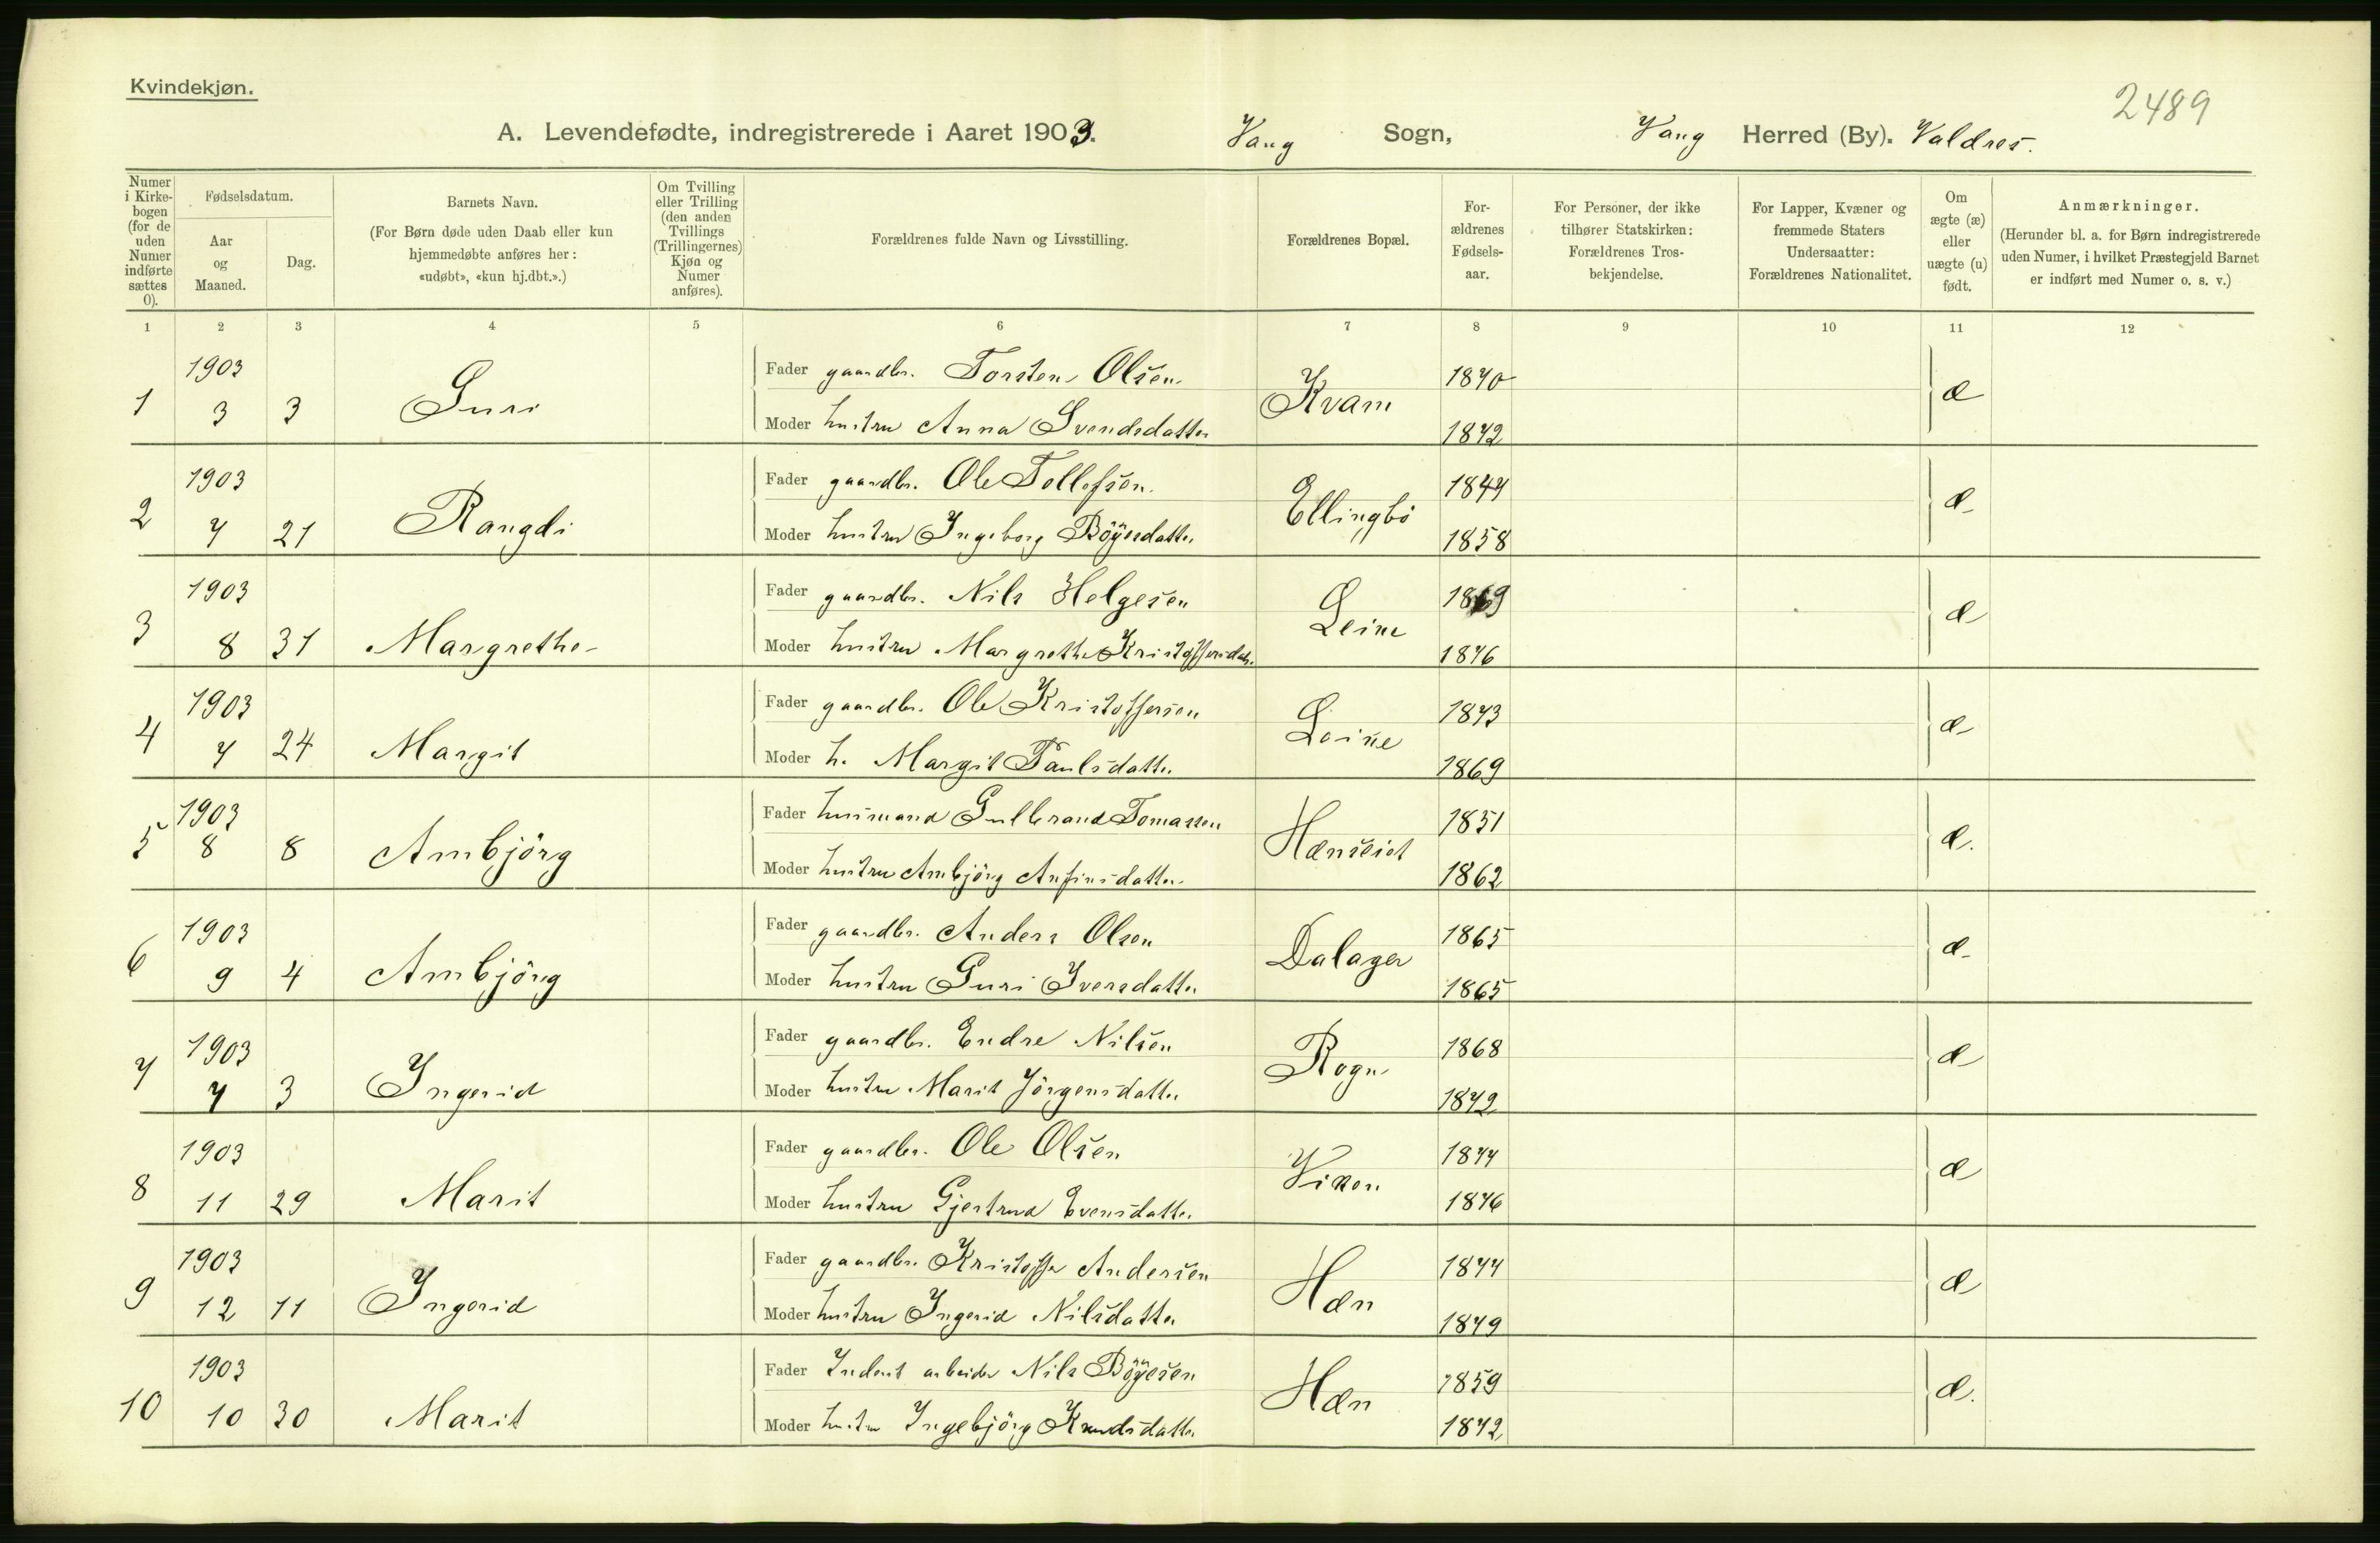 Kvindekjøn.
2489
A. Levendefødte, indregistrerede i Aaret 1903. Vang Sogn, Vang Herred (By). Valdres.
Numer i Kirkebogen (for de uden Numer indførte sættes 0).
Fødselsdatum.
Aar og Maaned.
Dag.
Barnets Navn.
(For Børn døde uden Daab eller kun hjemmedøbte anføres her: «udøbt», «kun hj.dbt.».)
Om Tvilling eller Trilling (den anden Tvillings (Trillingernes) Kjøn og Numer anføres).
Forældrenes fulde Navn og Livsstilling.
Forældrenes Bopæl.
Forældrenes Fødselsaar.
For Personer, der ikke tilhører Statskirken: Forældrenes Trosbekjendelse.
For Lapper, Kvæner og fremmede Staters Undersaatter: Forældrenes Nationalitet.
Om ægte (æ) eller uægte (u) født.
Anmærkninger.
(Herunder bl. a. for Børn indregistrerede uden Numer, i hvilket Præstegjeld Barnet er indført med Numer o. s. v.)
1 2 3 4 5 6 7 8 9 10 11 12
1 1903 3 3 Guri Fader gaardbr. Torsten Olsen Kvam 1870 æ
Moder hustru Anna Svendsdatter 1872
2 1903 7 21 Rangdi Fader gaardbr. Ole Tollefsen. Ellingbö 1847 æ
Moder hustru Ingeborg Böÿesdatter 1858
3 1903 8 31 Margrethe Fader gaardbr. Nils Helgesen Leine 1869 æ
Moder hustru Margrethe Kristoffersdatr. 1876
4 1903 7 24 Margit Fader gaardbr. Ole Kristoffersen Leine 1873 æ
Moder h. Margit Paulsdatter 1869
5 1903 8 8 Ambjörg Fader husmand Gulbrand Tomassen Hænseist 1851 æ.
Moder hustru Ambjörg Anfinsdatter 1862
6 1903 9 4 Ambjörg Fader gaardbr. Anders Olsen Dalager 1865 æ
Moder hustru Guri Iversdatter 1865
7 1903 7 3 Ingerid Fader gaardbr. Endre Nilsen Rogn 1868 æ
Moder hustru Marit Jörgensdatter 1872
8 1903 11 29 Marit Fader gaardbr. Ole Olsen Viken 1877 æ
Moder hustru Gjertrud Evensdatter 1876
9 1903 12 11 Ingerid Fader gaardbr. Kristoffer Andersen Hæn 1877 æ
Moder hustru Ingerid Nilsdatter 1879
10 1903 10 30 Marit Fader Inderst arbeider Nils Böÿesen Hæn 1859 æ.
Moder hustru Ingebjörg Knudsdatter 1872